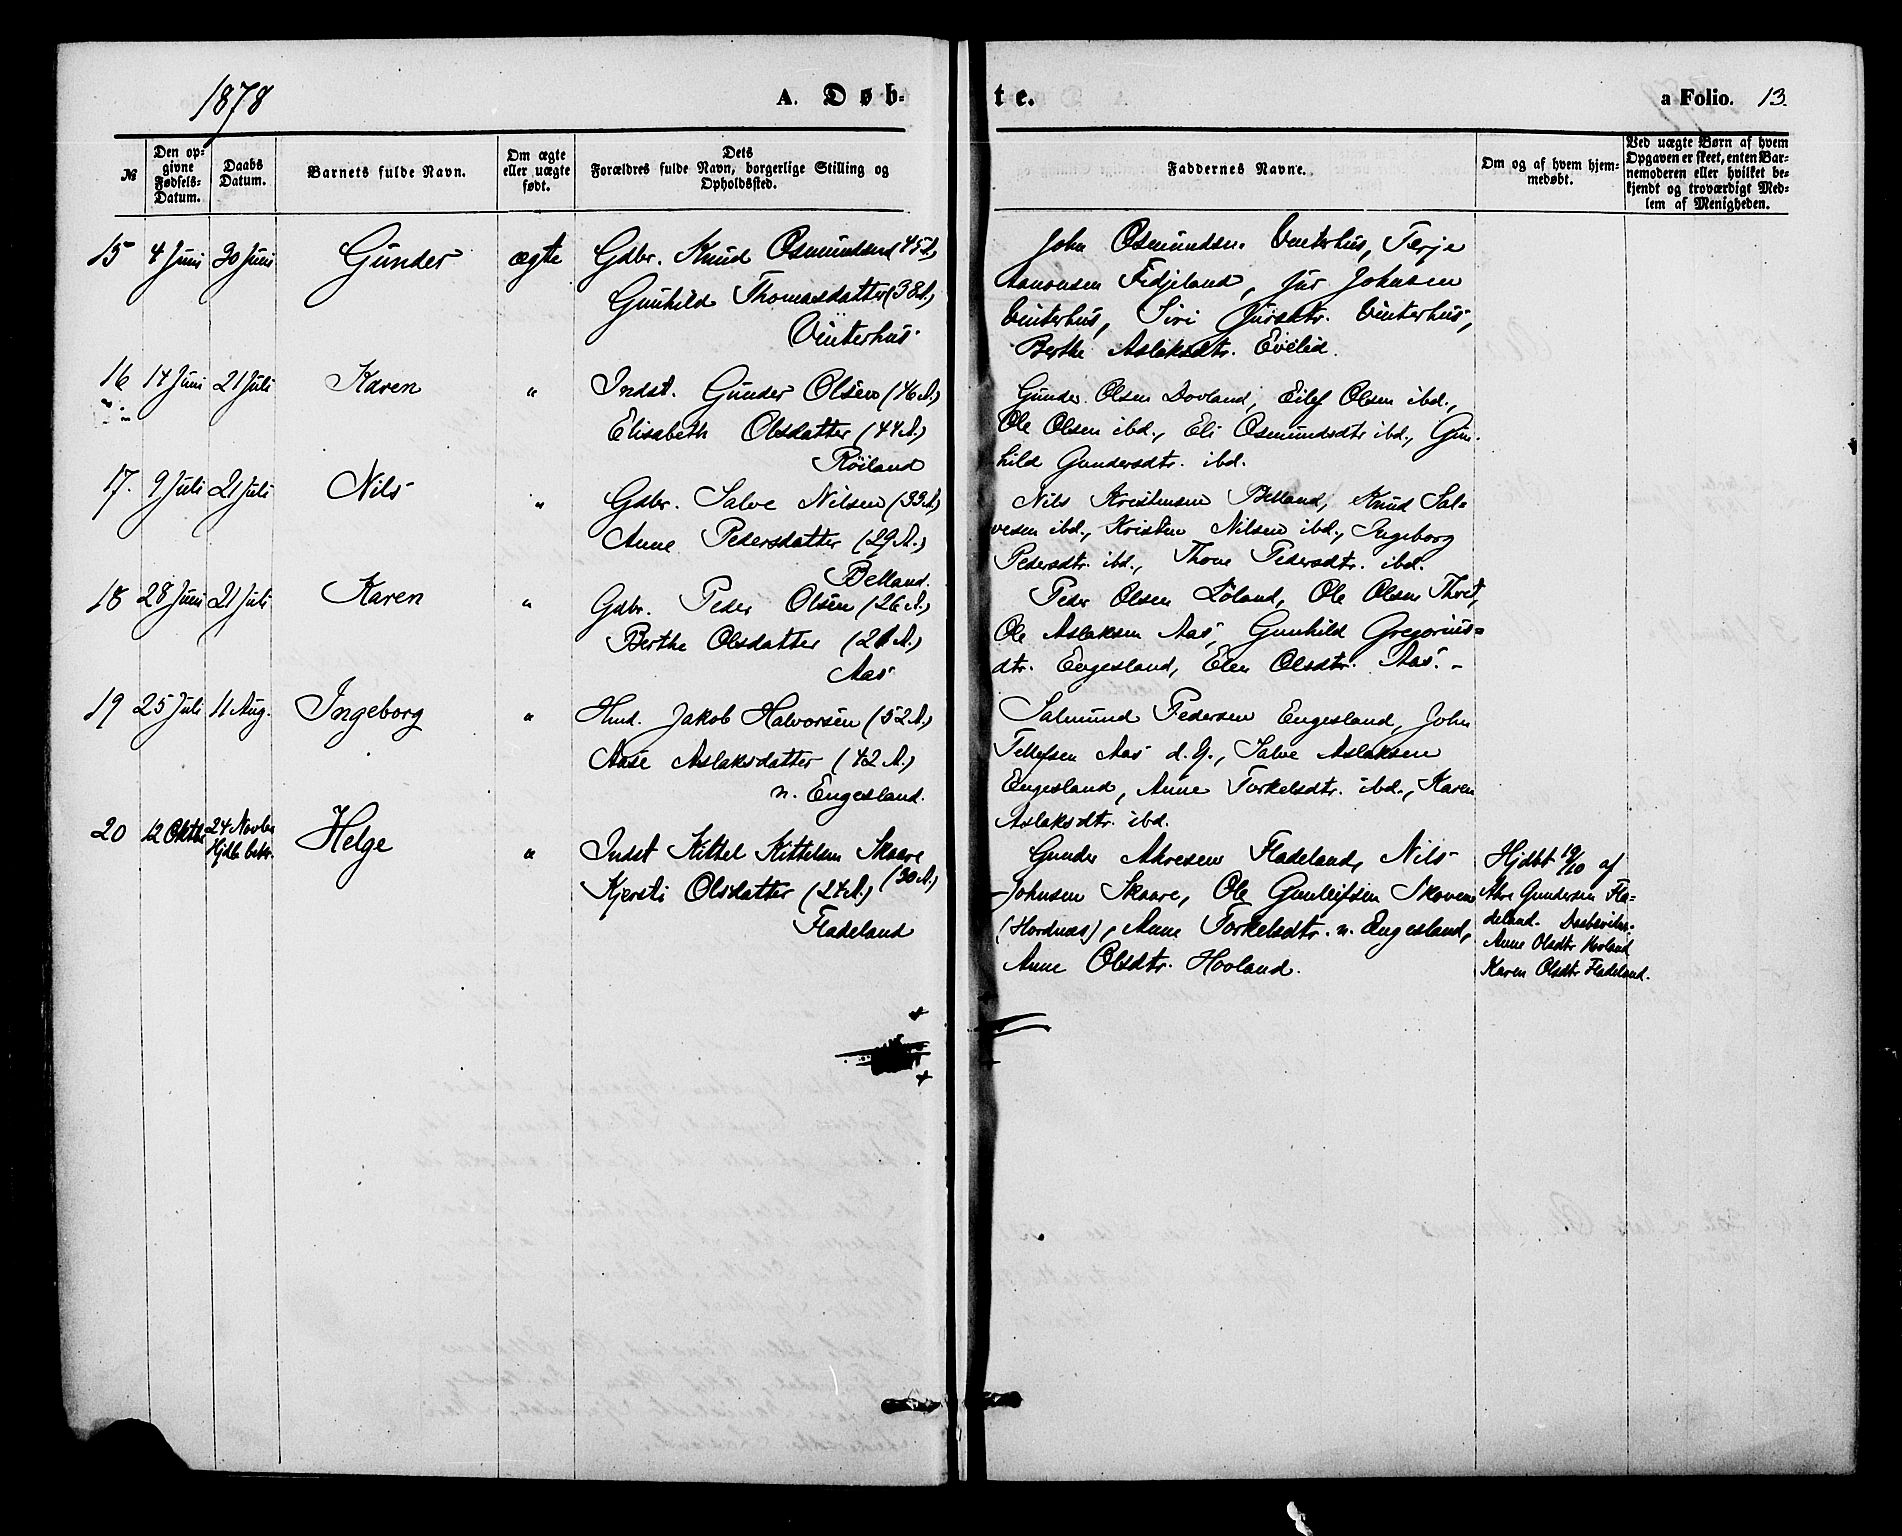 1878 A. Døb-
te. a Folio. 13.
№
Den op-
givne
Fødsels-
Datum.
Daabs
Datum.
Barnets fulde Navn.
Om ægte
eller uægte
født.
Dets
Forældres fulde Navn, borgerlige Stilling og
Opholdssted.
Faddernes Navne.
Om og af hvem hjem-
medøbt.
Ved uægte Børn af hvem
Opgaven er skeet, enten Bar-
nemoderen eller hvilket be-
kjendt og troværdigt Med-
lem af Menigheden.
15 4 Juni 30 Juni Gunder ægte Gdbr. Knud Osmundsen 45 A.)
Gunhild Thomasdatter (38 A.)
Vinterhus
John Osmundsen Vinterhus, Terje
Aanonsen Fidjeland, Jür Johnsen
Vinterhus, Siri Jürsdtr. Vinterhus,
Berthe Aslaksdtr. Evelid.
16 14 Juni 21 Juli Karen " Indst. Gunder Olsen (46 A.)
Elisabeth Olsdatter (44 A.)
Röiland
Gunder Olsen Dovland, Eilef Olsen ibd.,
Ole Olsen ibd., Eli Osmundsdtr ibd., Gun-
hild Gundersdtr. ibd.
17. 9 Juli 21 Juli Nils " Gdbr. Salve Nilsen (33 A.)
Anne Pedersdatter (29 A.)
Belland.
Nils Kristensen Belland, Knud Sal-
vesen ibd., Kristen Nilsen ibd., Ingeborg
Pedersdtr. ibd., Thone Pedersdtr. ibd.
18 28 Juni 21 Juli Karen " Gdbr. Peder Olsen (26 A.)
Berthe Olsdatter (21 A.)
Aas
Peder Olsen Löland, Ole Olsen Thvet,
Ole Aslaksen Aas, Gunhild Gregorius-
dtr. Engesland, Elen Olsdtr. Aas. -
19 25 Juli 11 Aug. Ingeborg " Hmd. Jakob Halvorsen (52 A.)
Aase Aslaksdatter (42 A.)
n. Engesland.
Salmund Pedersen Engesland, John
Tellefsen Aas d. y., Salve Aslaksen
Engesland, Anne Torkelsdtr. ibd., Karen
Aslaksdtr. ibd.
20 12 Oktbr 24 Novbr Helge " Indst Kittel Kittelsen Skaare
Hjdb bekr. (30 A.)
Kjersti Olsdatter (24 A.)
Fladeland
Gunder Akresen Fladeland, Nils
Johnsen Skaare, Ole Gunleifsen Skoven
(Hordnæs), Anne Torkelsdtr. n. Engesland,
Anne Olsdtr. Hovland.
Hjdbt 19/10 af
Akre Gundersen Fla-
deland. Daabsvidne.
Anne Olsdtr Hovland
Karen Olsdtr Fladeland.